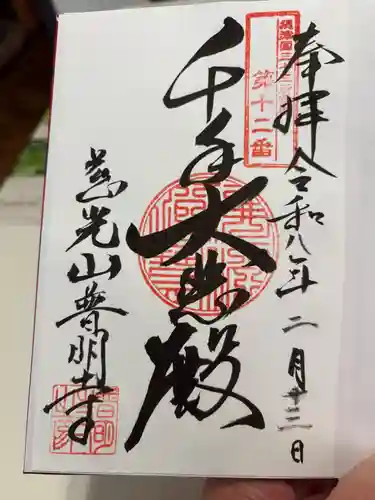 奉拝
令和八年二月十三日
摂津国三十三
第十二番
千手大悲殿
慈光山普明寺